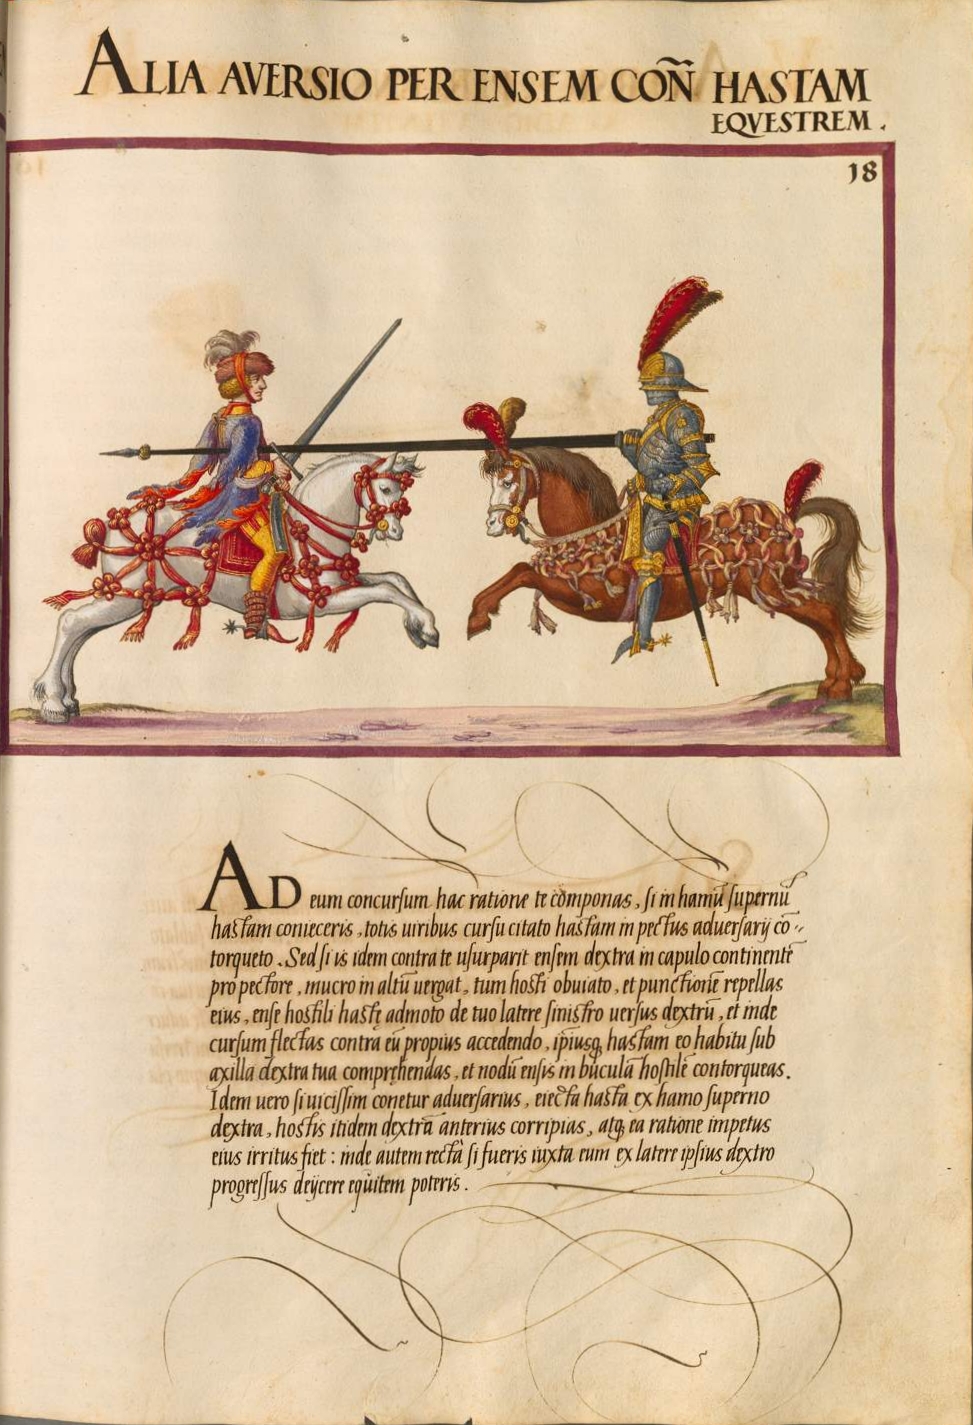 ALIA AVERSIO PER ENSEM COÑ HASTAM
EQVESTREM.
18
AD eum concursum hac ratione te componas, si in hamū supernū
hastam conieceris, totis uiribus cursu citato hastam in pectus aduersarij cō⸗
torqueto. Sed si is idem contra te usurparit ensem dextra in capulo continentē
pro pectore, mucro in altū uergat, tum hosti obuiato, et punctionē repellas
eius, ense hostili hastę admoto de tuo latere sinistro uersus dextrū, et inde
cursum flectas contra eū propius accedendo, ipiusq; hastam eo habitu sub
axilla dextra tua comprehendas, et nodū ensis in buculā hostilē contorqueas.
Idem uero si uicissim conetur aduersarius, eiecta hasta ex hamo superno
dextra, hostis itidem dextrā anterius corripias, atq; ea ratione impetus
eius irritus fiet: inde autem recta si fueris iuxta eum ex latere ipsius dextro
progressus deijcere equitem poteris.